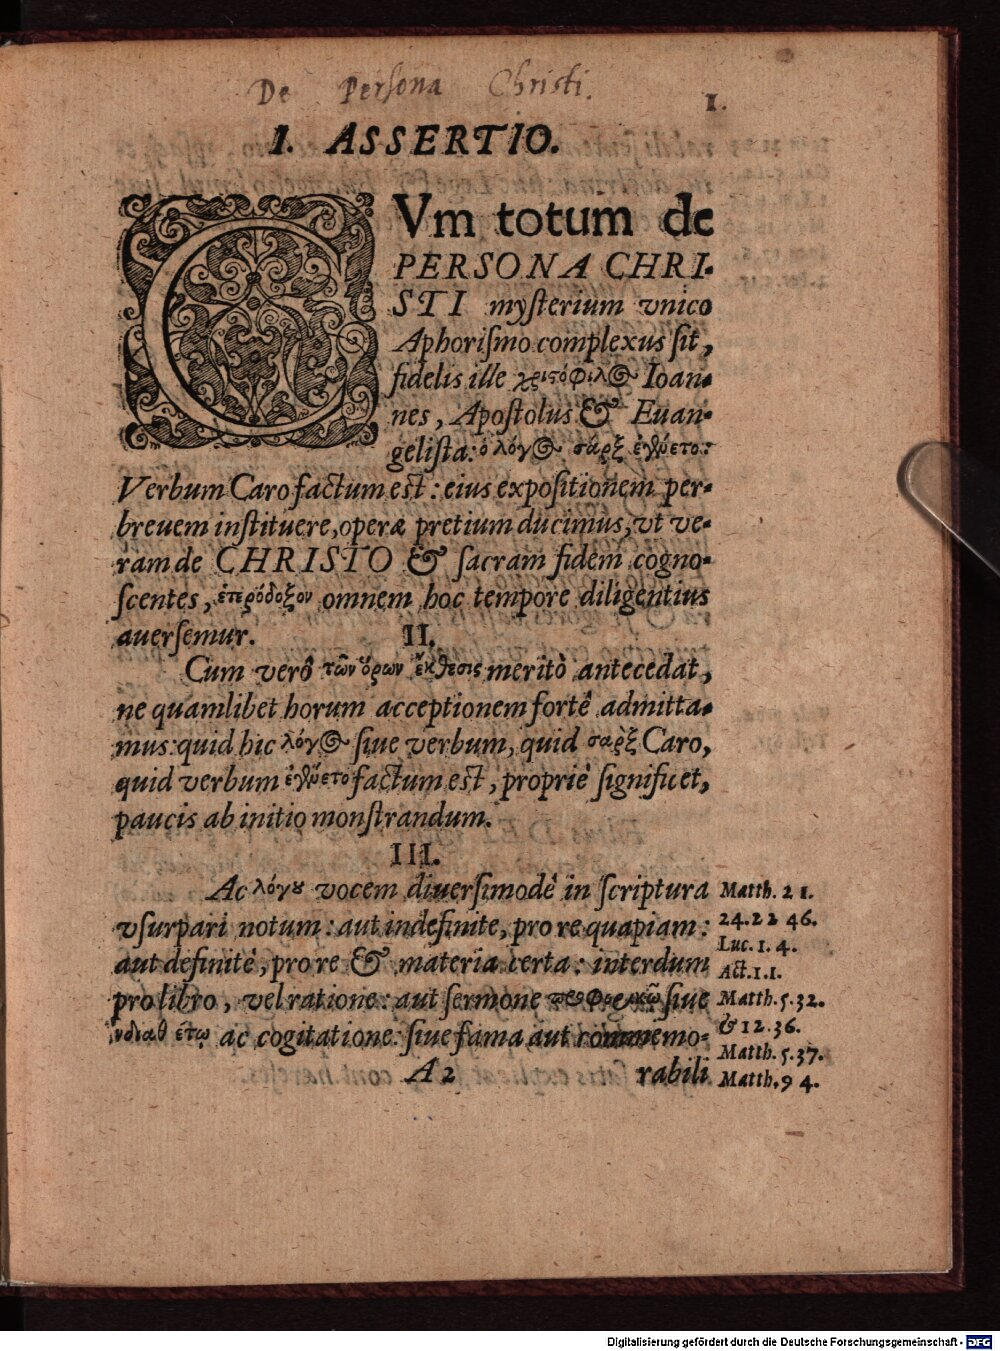 De Persona Christi.
1.
I. ASSERTIO.
CVm totum de
PERSONA CHRI-
STI mysterium vnico
Aphorismo complexus sit,
fidelis ille χριστόφιλος Ioan-
nes, Apostolus & Euan-
gelista: ὁ λόγος σάρξ ἐγένετο:
Verbum Caro factum est: eius expositionem per-
breuem instituere, operæ pretium ducimus, vt ve-
ram de CHRISTO & sacram fidem cogno-
scentes, ἑτερόδοξον omnem hoc tempore diligentius
auersemur.
II.
Cum verò τῶν ὅρων ἔκθεσις meritò antecedat,
ne quamlibet horum acceptionem fortè admitta-
mus: quid hic λόγος siue verbum, quid σαρξ Caro,
quid verbum ἐγένετο factum est, propriè significet,
paucis ab initio monstrandum.
III.
Ac λόγου vocem diuersimodè in scriptura
vsurpari notum: aut indefinite, pro re quapiam:
aut definitè, pro re & materia certa: interdum
pro libro, vel ratione: aut sermone προφορικῶ siue
ἐνδιαθέτῳ ac cogitatione: siue fama aut commemo-
A 2 rabili
Matth. 21.
24. 22 46.
Luc. 1. 4.
Act. 1. 1.
Matth. 5. 32.
& 12. 36.
Matth. 5. 37.
Matth. 9 4.
Digitalisierung gefördert durch die Deutsche Forschungsgemeinschaft - DFG